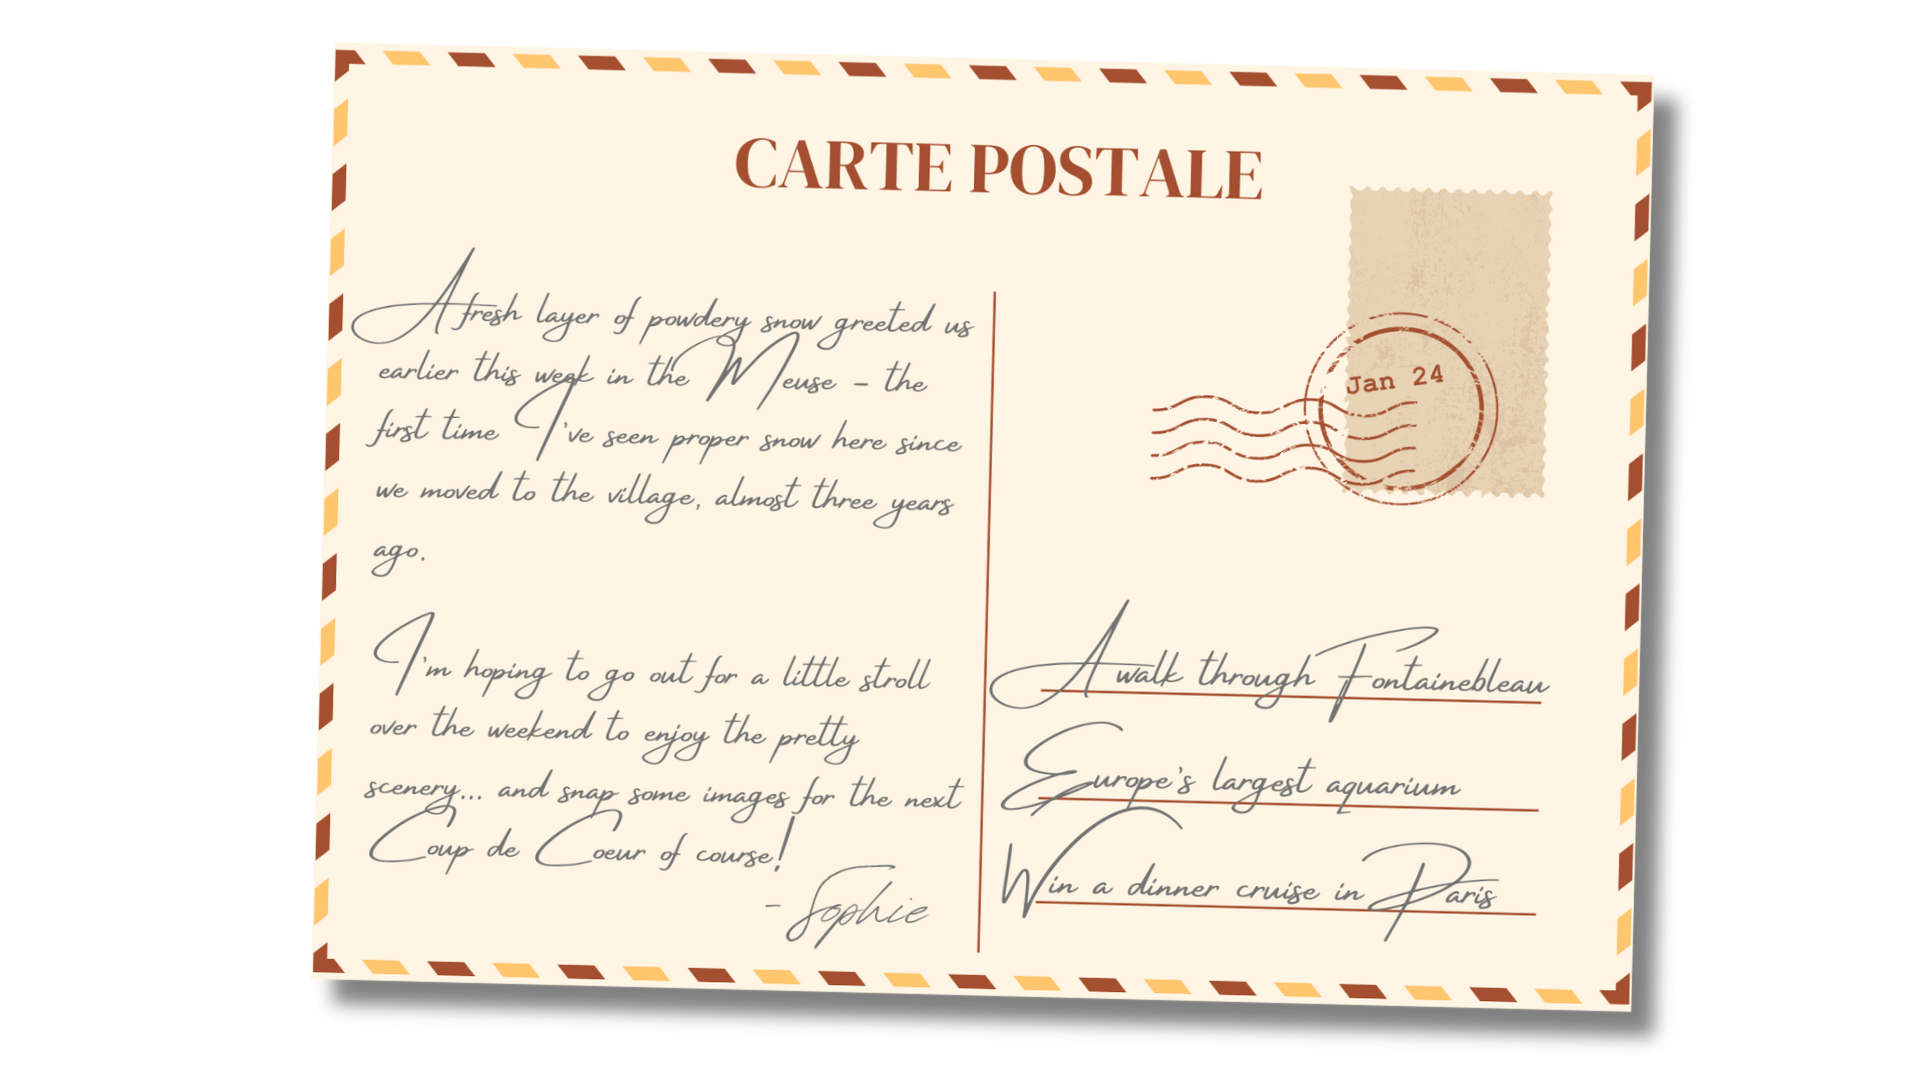 CARTE POSTALE
A fresh layer of powdery snow greeted us
earlier this week in the Meuse - the
first time I've seen proper snow here since
we moved to the village, almost three years
ago.
I'm hoping to go out for a little stroll
over the weekend to enjoy the pretty
scenery... and snap some images for the next
Coup de Coeur of course!
- Sophie
Jan 24
A walk through Fontainebleau
Europe's largest aquarium
Win a dinner cruise in Paris